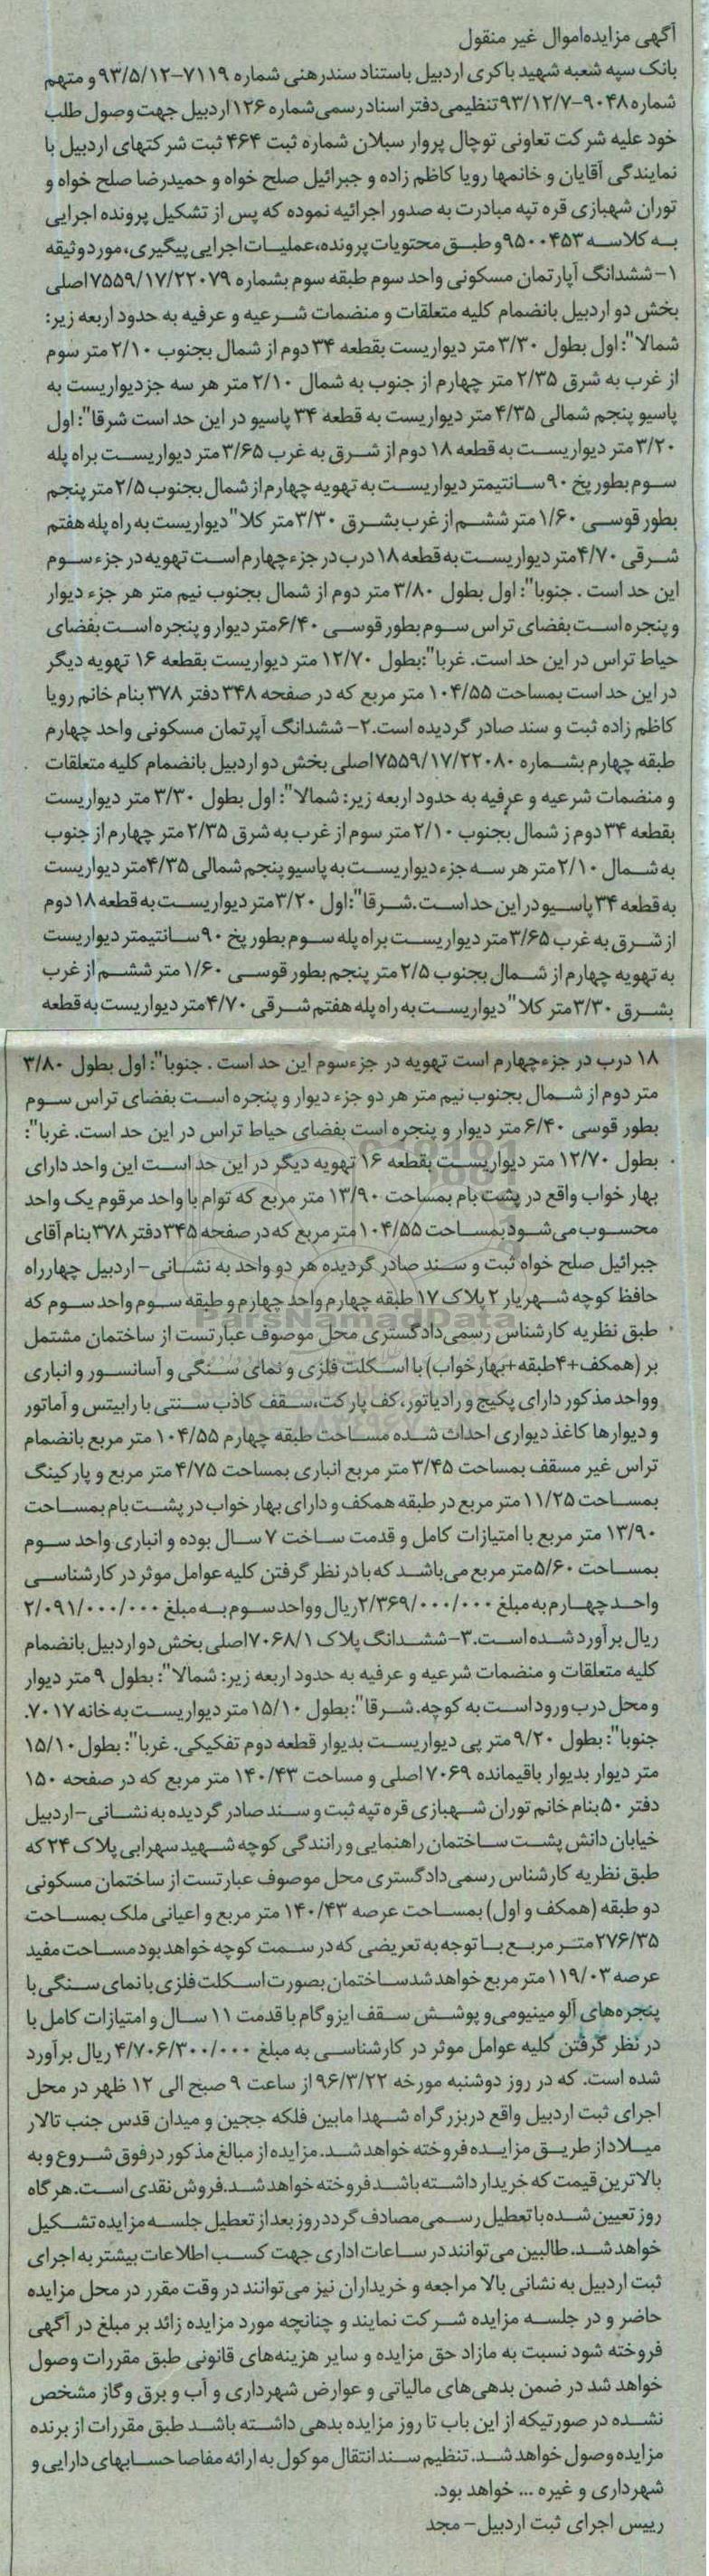 آگهی مزایده اموال غیر منقول
بانک سپه شعبه شهید باکری اردبیل باستناد سند رهنی شماره ۷۱۱۹-۹۳/۵/۱۲ و متهم
شماره ۹۰۴۸-۹۳/۱۲/۷ تنظیمی دفتر اسناد رسمی شماره ۱۲۶ اردبیل جهت وصول طلب
خود علیه شرکت تعاونی توچال پروار سبلان شماره ثبت ۴۶۴ ثبت شرکتهای اردبیل با
نمایندگی آقایان و خانمها رویا کاظم زاده و جبرائیل صلح خواه و حمیدرضا صلح خواه و
توران شهبازی قره تپه مبادرت به صدور اجرائیه نموده که پس از تشکیل پرونده اجرایی
به کلاسه ۹۵۰۰۴۵۳ و طبق محتویات پرونده، عملیات اجرایی پیگیری، مورد وثیقه
۱- ششدانگ آپارتمان مسکونی واحد سوم طبقه سوم بشماره ۷۵۵۹/۱۷/۲۲۰۷۹ اصلی
بخش دو اردبیل بانضمام کلیه متعلقات و منضمات شرعیه و عرفیه به حدود اربعه زیر:
شمالا": اول بطول ۳/۳۰ متر دیواریست بقطعه ۳۴ دوم از شمال بجنوب ۲/۱۰ متر سوم
از غرب به شرق ۲/۳۵ متر چهارم از جنوب به شمال ۲/۱۰ متر هر سه جز دیواریست به
پاسیو پنجم شمالی ۴/۳۵ متر دیواریست به قطعه ۳۴ پاسیو در این حد است شرقا": اول
۳/۲۰ متر دیواریست به قطعه ۱۸ دوم از شرق به غرب ۳/۶۵ متر دیواریست براه پله
سوم بطور پخ ۹۰ سانتیمتر دیواریست به تهویه چهارم از شمال بجنوب ۲/۵ متر پنجم
بطور قوسی ۱/۶۰ متر ششم از غرب بشرق ۳/۳۰ متر کلا" دیواریست به راه پله هفتم
شرقی ۴/۷۰ متر دیواریست به قطعه ۱۸ درب در جزء چهارم است تهویه در جزء سوم
این حد است . جنوبا": اول بطول ۳/۸۰ متر دوم از شمال بجنوب نیم متر هر جزء دیوار
و پنجره است بفضای تراس سوم بطور قوسی ۶/۴۰ متر دیوار و پنجره است بفضای
حیاط تراس در این حد است. غربا": بطول ۱۲/۷۰ متر دیواریست بقطعه ۱۶ تهویه دیگر
در این حد است بمساحت ۱۰۴/۵۵ متر مربع که در صفحه ۳۴۸ دفتر ۳۷۸ بنام خانم رویا
کاظم زاده ثبت و سند صادر گردیده است.۲- ششدانگ آپرتمان مسکونی واحد چهارم
طبقه چهارم بشماره ۷۵۵۹/۱۷/۲۲۰۸۰ اصلی بخش دو اردبیل بانضمام کلیه متعلقات
و منضمات شرعیه و عرفیه به حدود اربعه زیر: شمالا": اول بطول ۳/۳۰ متر دیواریست
بقطعه ۳۴ دوم ز شمال بجنوب ۲/۱۰ متر سوم از غرب به شرق ۲/۳۵ متر چهارم از جنوب
به شمال ۲/۱۰ متر هر سه جزء دیواریست به پاسیو پنجم شمالی ۴/۳۵ متر دیواریست
به قطعه ۳۴ پاسیو در این حد است. شرقا": اول ۳/۲۰ متر دیواریست به قطعه ۱۸ دوم
از شرق به غرب ۳/۶۵ متر دیواریست براه پله سوم بطور پخ ۹۰ سانتیمتر دیواریست
به تهویه چهارم از شمال بجنوب ۲/۵ متر پنجم بطور قوسی ۱/۶۰ متر ششم از غرب
بشرق ۳/۳۰ متر کلا" دیواریست به راه پله هفتم شرقی ۴/۷۰ متر دیواریست به قطعه
۱۸ درب در جزء چهارم است تهویه در جزء سوم این حد است . جنوبا": اول بطول ۳/۸۰
متر دوم از شمال بجنوب نیم متر هر دو جزء دیوار و پنجره است بفضای تراس سوم
بطور قوسی ۶/۴۰ متر دیوار و پنجره است بفضای حیاط تراس در این حد است. غربا":
بطول ۱۲/۷۰ متر دیواریست بقطعه ۱۶ تهویه دیگر در این حد است این واحد دارای
بهار خواب واقع در پشت بام بمساحت ۱۳/۹۰ متر مربع که توام با واحد مرقوم یک واحد
محسوب می شود بمساحت ۱۰۴/۵۵ متر مربع که در صفحه ۳۴۵ دفتر ۳۷۸ بنام آقای
جبرائیل صلح خواه ثبت و سند صادر گردیده هر دو واحد به نشانی- اردبیل چهارراه
حافظ کوچه شهریار ۲ پلاک ۱۷ طبقه چهارم واحد چهارم و طبقه سوم واحد سوم که
طبق نظریه کارشناس رسمی دادگستری محل موصوف عبارتست از ساختمان مشتمل
بر (همکف+۴ طبقه+بهارخواب) با اسکلت فلزی و نمای سنگی و آسانسور و انباری
و واحد مذکور دارای پکیج و رادیاتور، کف پارکت، سقف کاذب سنتی با رابیتس و آماتور
و دیوارها کاغذ دیواری احداث شده مساحت طبقه چهارم ۱۰۴/۵۵ متر مربع بانضمام
تراس غیر مسقف بمساحت ۳/۴۵ متر مربع انباری بمساحت ۴/۷۵ متر مربع و پارکینگ
بمساحت ۱۱/۲۵ متر مربع در طبقه همکف و دارای بهار خواب در پشت بام بمساحت
۱۳/۹۰ متر مربع با امتیازات کامل و قدمت ساخت ۷ سال بوده و انباری واحد سوم
بمساحت ۵/۶۰ متر مربع می باشد که با در نظر گرفتن کلیه عوامل موثر در کارشناسی
واحد چهارم به مبلغ ۲/۳۶۹/۰۰۰/۰۰۰ ریال و واحد سوم به مبلغ ۲/۰۹۱/۰۰۰/۰۰۰
ریال برآورد شده است.۳- ششدانگ پلاک ۷۰۶۸/۱ اصلی بخش دو اردبیل بانضمام
کلیه متعلقات و منضمات شرعیه و عرفیه به حدود اربعه زیر: شمالا": بطول ۹ متر دیوار
و محل درب ورود است به کوچه. شرقا": بطول ۱۵/۱۰ متر دیواریست به خانه ۷۰۱۷.
جنوبا": بطول ۹/۲۰ متر پی دیواریست بدیوار قطعه دوم تفکیکی. غربا": بطول ۱۵/۱۰
متر دیوار بدیوار باقیمانده ۷۰۶۹ اصلی و مساحت ۱۴۰/۴۳ متر مربع که در صفحه ۱۵۰
دفتر ۵۰ بنام خانم توران شهبازی قره تپه ثبت و سند صادر گردیده به نشانی- اردبیل
خیابان دانش پشت ساختمان راهنمایی و رانندگی کوچه شهید سهرابی پلاک ۲۴ که
طبق نظریه کارشناس رسمی دادگستری محل موصوف عبارتست از ساختمان مسکونی
دو طبقه (همکف و اول) بمساحت عرصه ۱۴۰/۴۳ متر مربع و اعیانی ملک بمساحت
۲۷۶/۳۵ متر مربع با توجه به تعریضی که در سمت کوچه خواهد بود مساحت مفید
عرصه ۱۱۹/۰۳ متر مربع خواهد شد ساختمان بصورت اسکلت فلزی با نمای سنگی با
پنجره های آلومینیومی و پوشش سقف ایزوگام با قدمت ۱۱ سال و امتیازات کامل با
در نظر گرفتن کلیه عوامل موثر در کارشناسی به مبلغ ۴/۷۰۶/۳۰۰/۰۰۰ ریال برآورد
شده است. که در روز دوشنبه مورخه ۹۶/۳/۲۲ از ساعت ۹ صبح الی ۱۲ ظهر در محل
اجرای ثبت اردبیل واقع در بزرگراه شهدا مابین فلکه ججین و میدان قدس جنب تالار
میلاد از طریق مزایده فروخته خواهد شد. مزایده از مبالغ مذکور در فوق شروع و به
بالاترین قیمت که خریدار داشته باشد فروخته خواهد شد. فروش نقدی است. هرگاه
روز تعیین شده با تعطیل رسمی مصادف گردد روز بعد از تعطیل جلسه مزایده تشکیل
خواهد شد. طالبین می توانند در ساعات اداری جهت کسب اطلاعات بیشتر به اجرای
ثبت اردبیل به نشانی بالا مراجعه و خریداران نیز می توانند در وقت مقرر در محل مزایده
حاضر و در جلسه مزایده شرکت نمایند و چنانچه مورد مزایده زائد بر مبلغ در آگهی
فروخته شود نسبت به مازاد حق مزایده و سایر هزینه های قانونی طبق مقررات وصول
خواهد شد در ضمن بدهی های مالیاتی و عوارض شهرداری و آب و برق و گاز مشخص
نشده در صورتیکه از این باب تا روز مزایده بدهی داشته باشد طبق مقررات از برنده
مزایده وصول خواهد شد. تنظیم سند انتقال موکول به ارائه مفاصا حسابهای دارایی و
شهرداری و غیره ... خواهد بود.
رییس اجرای ثبت اردبیل- مجد
ParsNamadData